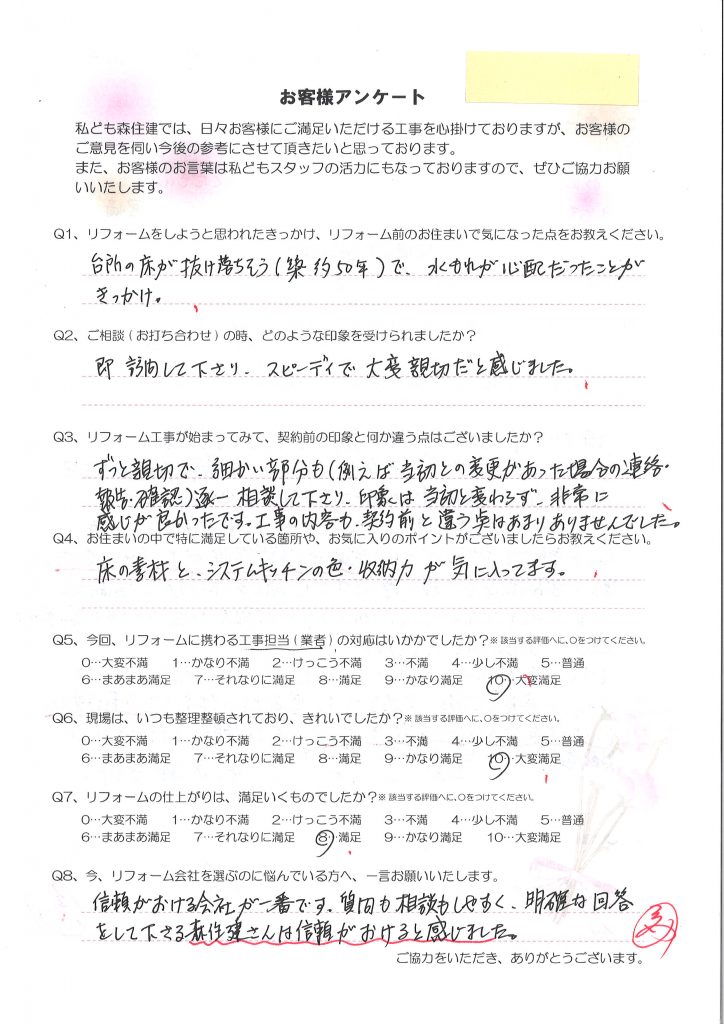 お客様アンケート
私ども森住建では、日々お客様にご満足いただける工事を心掛けておりますが、お客様の
ご意見を伺い今後の参考にさせて頂きたいと思っております。
また、お客様のお言葉は私どもスタッフの活力にもなっておりますので、ぜひご協力お願
いいたします。
Q1、リフォームをしようと思われたきっかけ、リフォーム前のお住まいで気になった点をお教えください。
台所の床が抜け落ちそう(築約50年)で、水もれが心配だったことが
きっかけ。
Q2、ご相談(お打ち合わせ)の時、どのような印象を受けられましたか?
即訪問して下さり、スピーディで大変親切だと感じました。
Q3、リフォーム工事が始まってみて、契約前の印象と何か違う点はございましたか?
ずっと親切で、細かい部分も(例えば当初との変更があった場合の連絡・
報告・確認)逐一相談して下さり、印象は当初と変わらず、非常に
感じが良かったです。工事の内容も、契約前と違う点はあまりありませんでした。
Q4、お住まいの中で特に満足している箇所や、お気に入りのポイントがございましたらお教えください。
床の素材と、システムキッチンの色・収納力が気に入ってます。
Q5、今回、リフォームに携わる工事担当(業者)の対応はいかかでしたか?※該当する評価へに、○をつけてください。
0…大変不満 1…かなり不満 2…けっこう不満 3…不満 4…少し不満 5…普通
6…まあまあ満足 7…それなりに満足 8…満足 9…かなり満足 10…大変満足
Q6、現場は、いつも整理整頓されており、きれいでしたか?※該当する評価へに、○をつけてください。
0…大変不満 1…かなり不満 2…けっこう不満 3…不満 4…少し不満 5…普通
6…まあまあ満足 7…それなりに満足 8…満足 9…かなり満足 10…大変満足
Q7、リフォームの仕上がりは、満足いくものでしたか?※該当する評価へに、○をつけてください。
0…大変不満 1…かなり不満 2…けっこう不満 3…不満 4…少し不満 5…普通
6…まあまあ満足 7…それなりに満足 8…満足 9…かなり満足 10…大変満足
Q8、今、リフォーム会社を選ぶのに悩んでいる方へ、一言お願いいたします。
信頼がおける会社が一番です。質問も相談もしやすく、明確な回答
をして下さる森住建さんは信頼がおけると感じました。
ご協力をいただき、ありがとうございます。